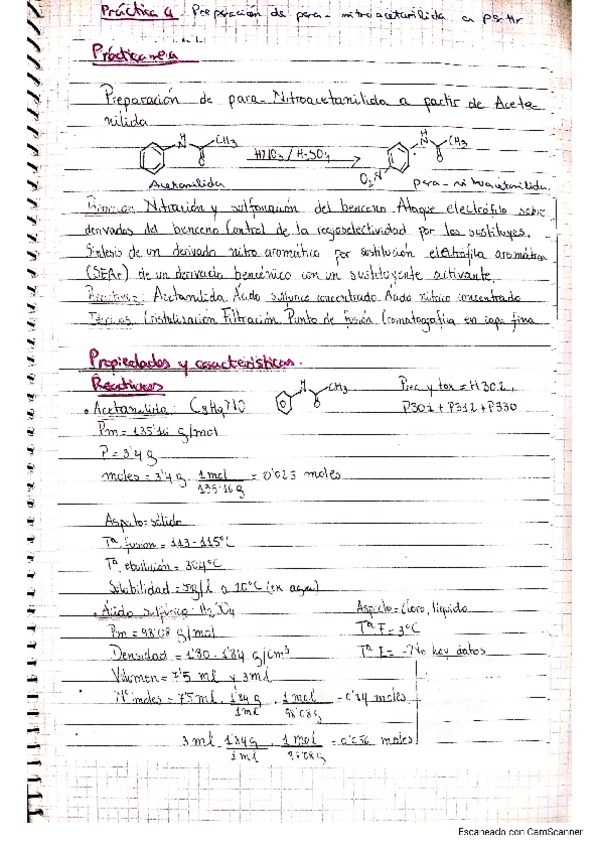 Práctica 4. Preparación de para-nitroacetanilida a partir
Práctica nº4
Preparación de para-Nitroacetanilida a partir de Aceta-
nilida
H N CH3 O HNO3/H2SO4 H N CH3 O O2N
Acetanilida para-nitroacetanilida.
Nitración y sulfonación del benceno. Ataque electrófilo sobre
derivados del benceno. Control de la regioselectividad por los sustituyes.
Síntesis de un derivado nitro aromático por sustitución electrófila aromática
(SEAr) de un derivado bencénico con un sustituyente activante.
Reactivos: Acetanilida. Ácido sulfúrico concentrado. Ácido nítrico concentrado
Técnicas: Cristalización. Filtración. Punto de fusión. Cromatografía en capa fina
Propiedades y características.
Reactivos
• Acetanilida: C8H9NO H N CH3 O Prec y tox = H302,
P301 + P312 + P330
Pm = 135'16 g/mol
P = 3'4 g
moles = 3'4 g · 1 mol / 135'16 g = 0'025 moles
Aspecto = sólido
Tª fusión = 113-115ºC
Tª ebullición = 304ºC
Solubilidad = 5g/l a 20ºC (en agua)
• Ácido sulfúrico: H2SO4 Aspecto = Claro, líquido
Pm = 98'08 g/mol Tª F = 3ºC
Densidad = 1'80 - 1'84 g/cm³ No hay datos
Volumen = 7'5 ml y 3ml
Nº moles = 7'5 ml · 1'84 g / 1 ml · 1 mol / 98'08g = 0'14 moles
3 ml · 1'84g / 1 ml · 1 mol / 98'08g = 0'056 moles
Escaneado con CamScanner